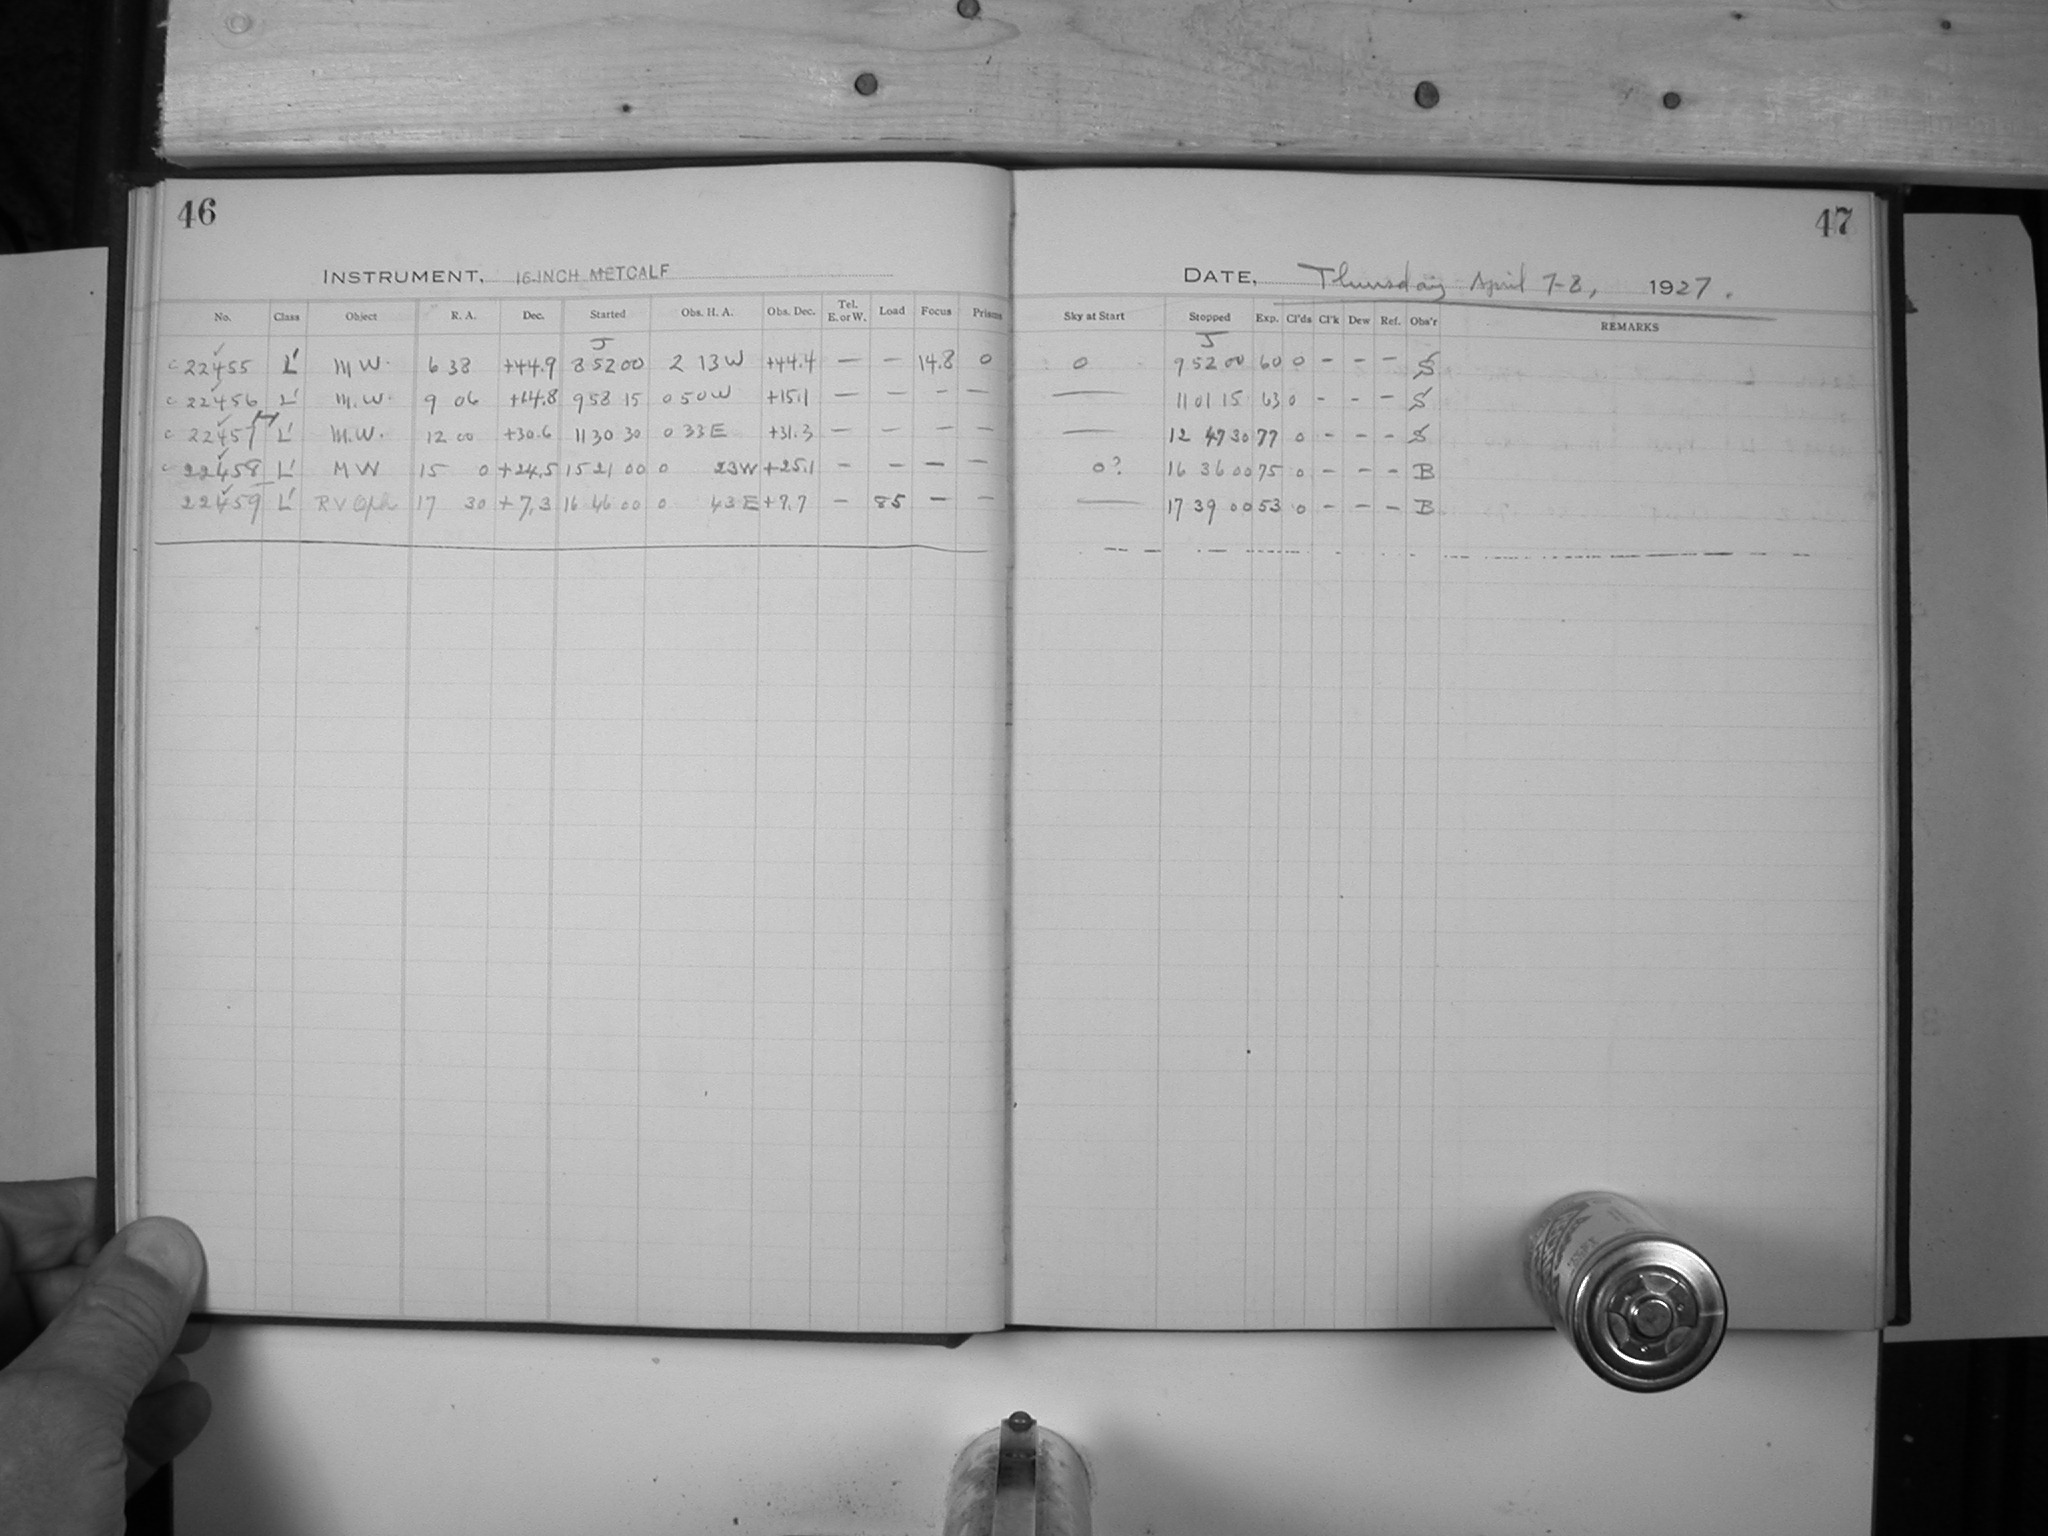 46
INSTRUMENT, 16-INCH METCALF
No. Class Object R. A. Dec. Started Obs. H. A. Obs. Dec. Tel. E. or W. Load Focus Prisms
J
c 22455 L' M W. 6 38 +44.9 8 52 00 2 13 W +44.4 — — 14.8 0
c 22456 L' M.W. 9 06 +14.8 9 58 15 0 50 W +15.1 — — — —
c 22457 L' M.W. 12 00 +30.6 11 30 30 0 33 E +31.3 — — — —
c 22458 L' M W 15 0 +24.5 15 21 00 0 23 W +25.1 — — — —
22459 L' R V Oph 17 30 +7.3 16 46 00 0 43 E +7.7 — 85 — —
47
DATE, Thursday April 7-8, 1927.
Sky at Start Stopped Exp. Cl'ds Cl'k Dew Ref. Obs'r REMARKS
J
0 9 52 00 60 0 - - - S
— 11 01 15 63 0 - - - S
— 12 47 30 77 0 - - - S
0? 16 36 00 75 0 - - - B
— 17 39 00 53 0 - - - B